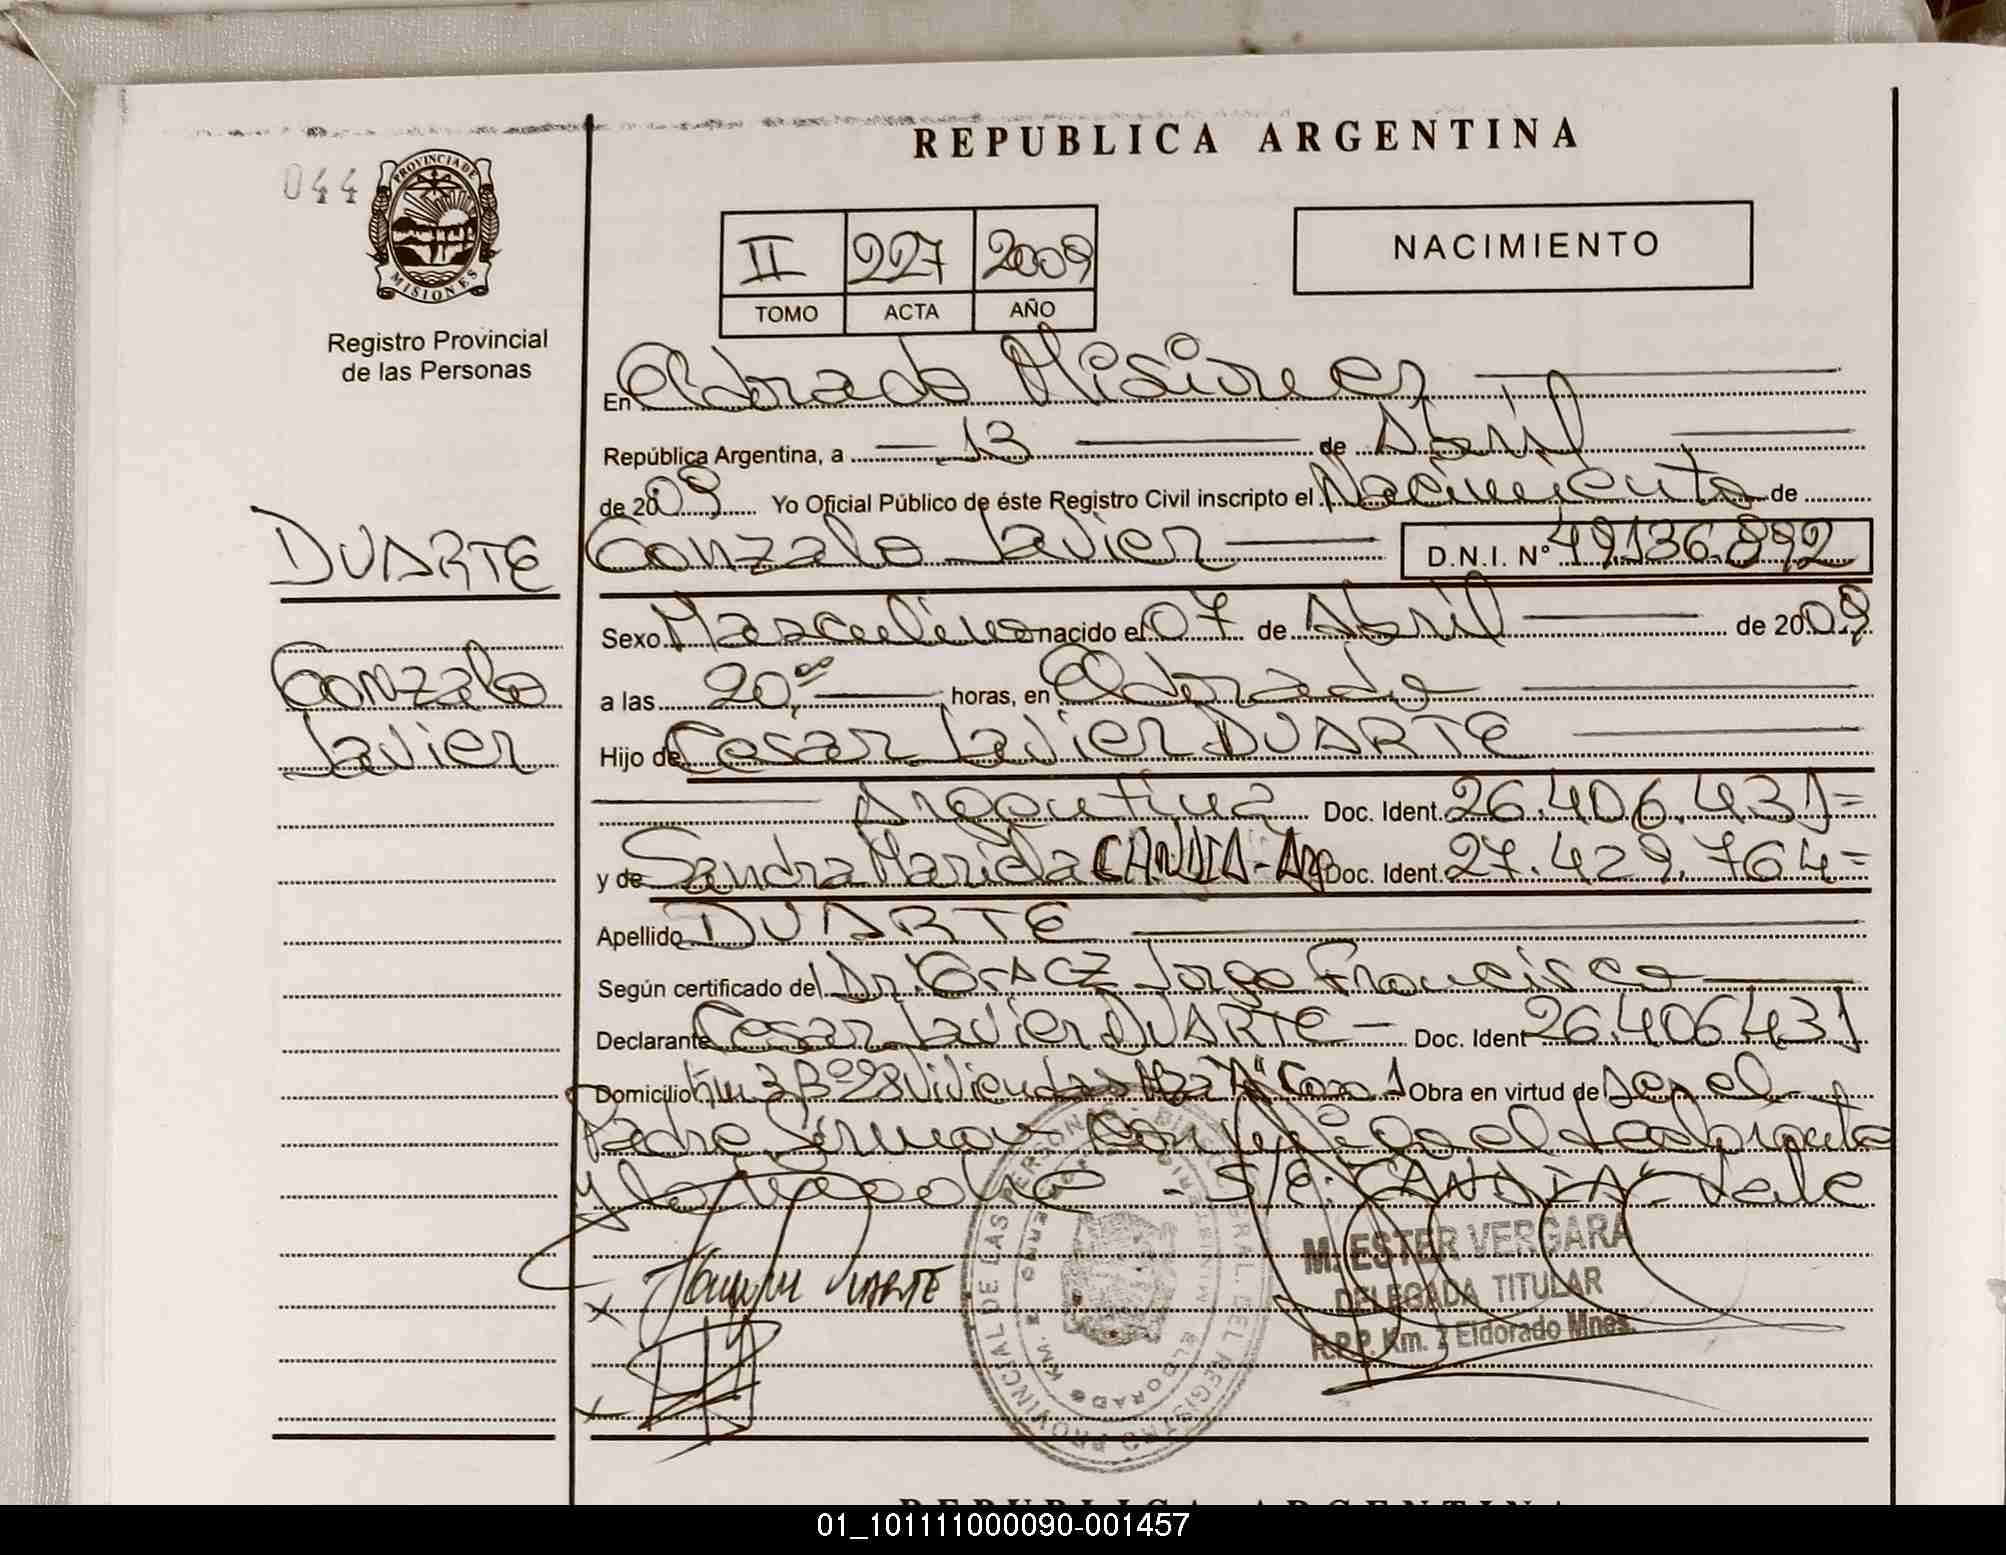 REPUBLICA ARGENTINA
044
PROVINCIA DE
MISIONES
Registro Provincial
de las Personas
II 227 2009
TOMO ACTA AÑO
NACIMIENTO
En Eldorado Misiones
República Argentina, a 13 de Abril
de 2009 Yo Oficial Público de éste Registro Civil inscripto el Nacimiento de
Gonzalo Javier D.N.I. Nº 49.136.892
DUARTE
Gonzalo
Javier
Sexo Masculino nacido el 07 de Abril de 2009
a las 20,00 horas, en Eldorado
Hijo de Cesar Javier DUARTE
Argentina Doc. Ident. 26.406.431=
y de Sandra Mariela CANDIA - Arg Doc. Ident. 27.429.764=
Apellido DUARTE
Según certificado del Dr. Jorge Francisco
Declarante Cesar Javier DUARTE - Doc. Ident 26.406431
Domicilio Km 3 Bº 28 Viviendas Mza "A" Casa 1 Obra en virtud de ser el
Padre firman conmigo el declarante
y la madre - S/E: "CANDIA" Vale
x DUARTE
x
M. ESTER VERGARA
DELEGADA TITULAR
R.P.P. Km. 2 Eldorado Mnes.
REPUBLICA ARGENTINA
01_101111000090-001457